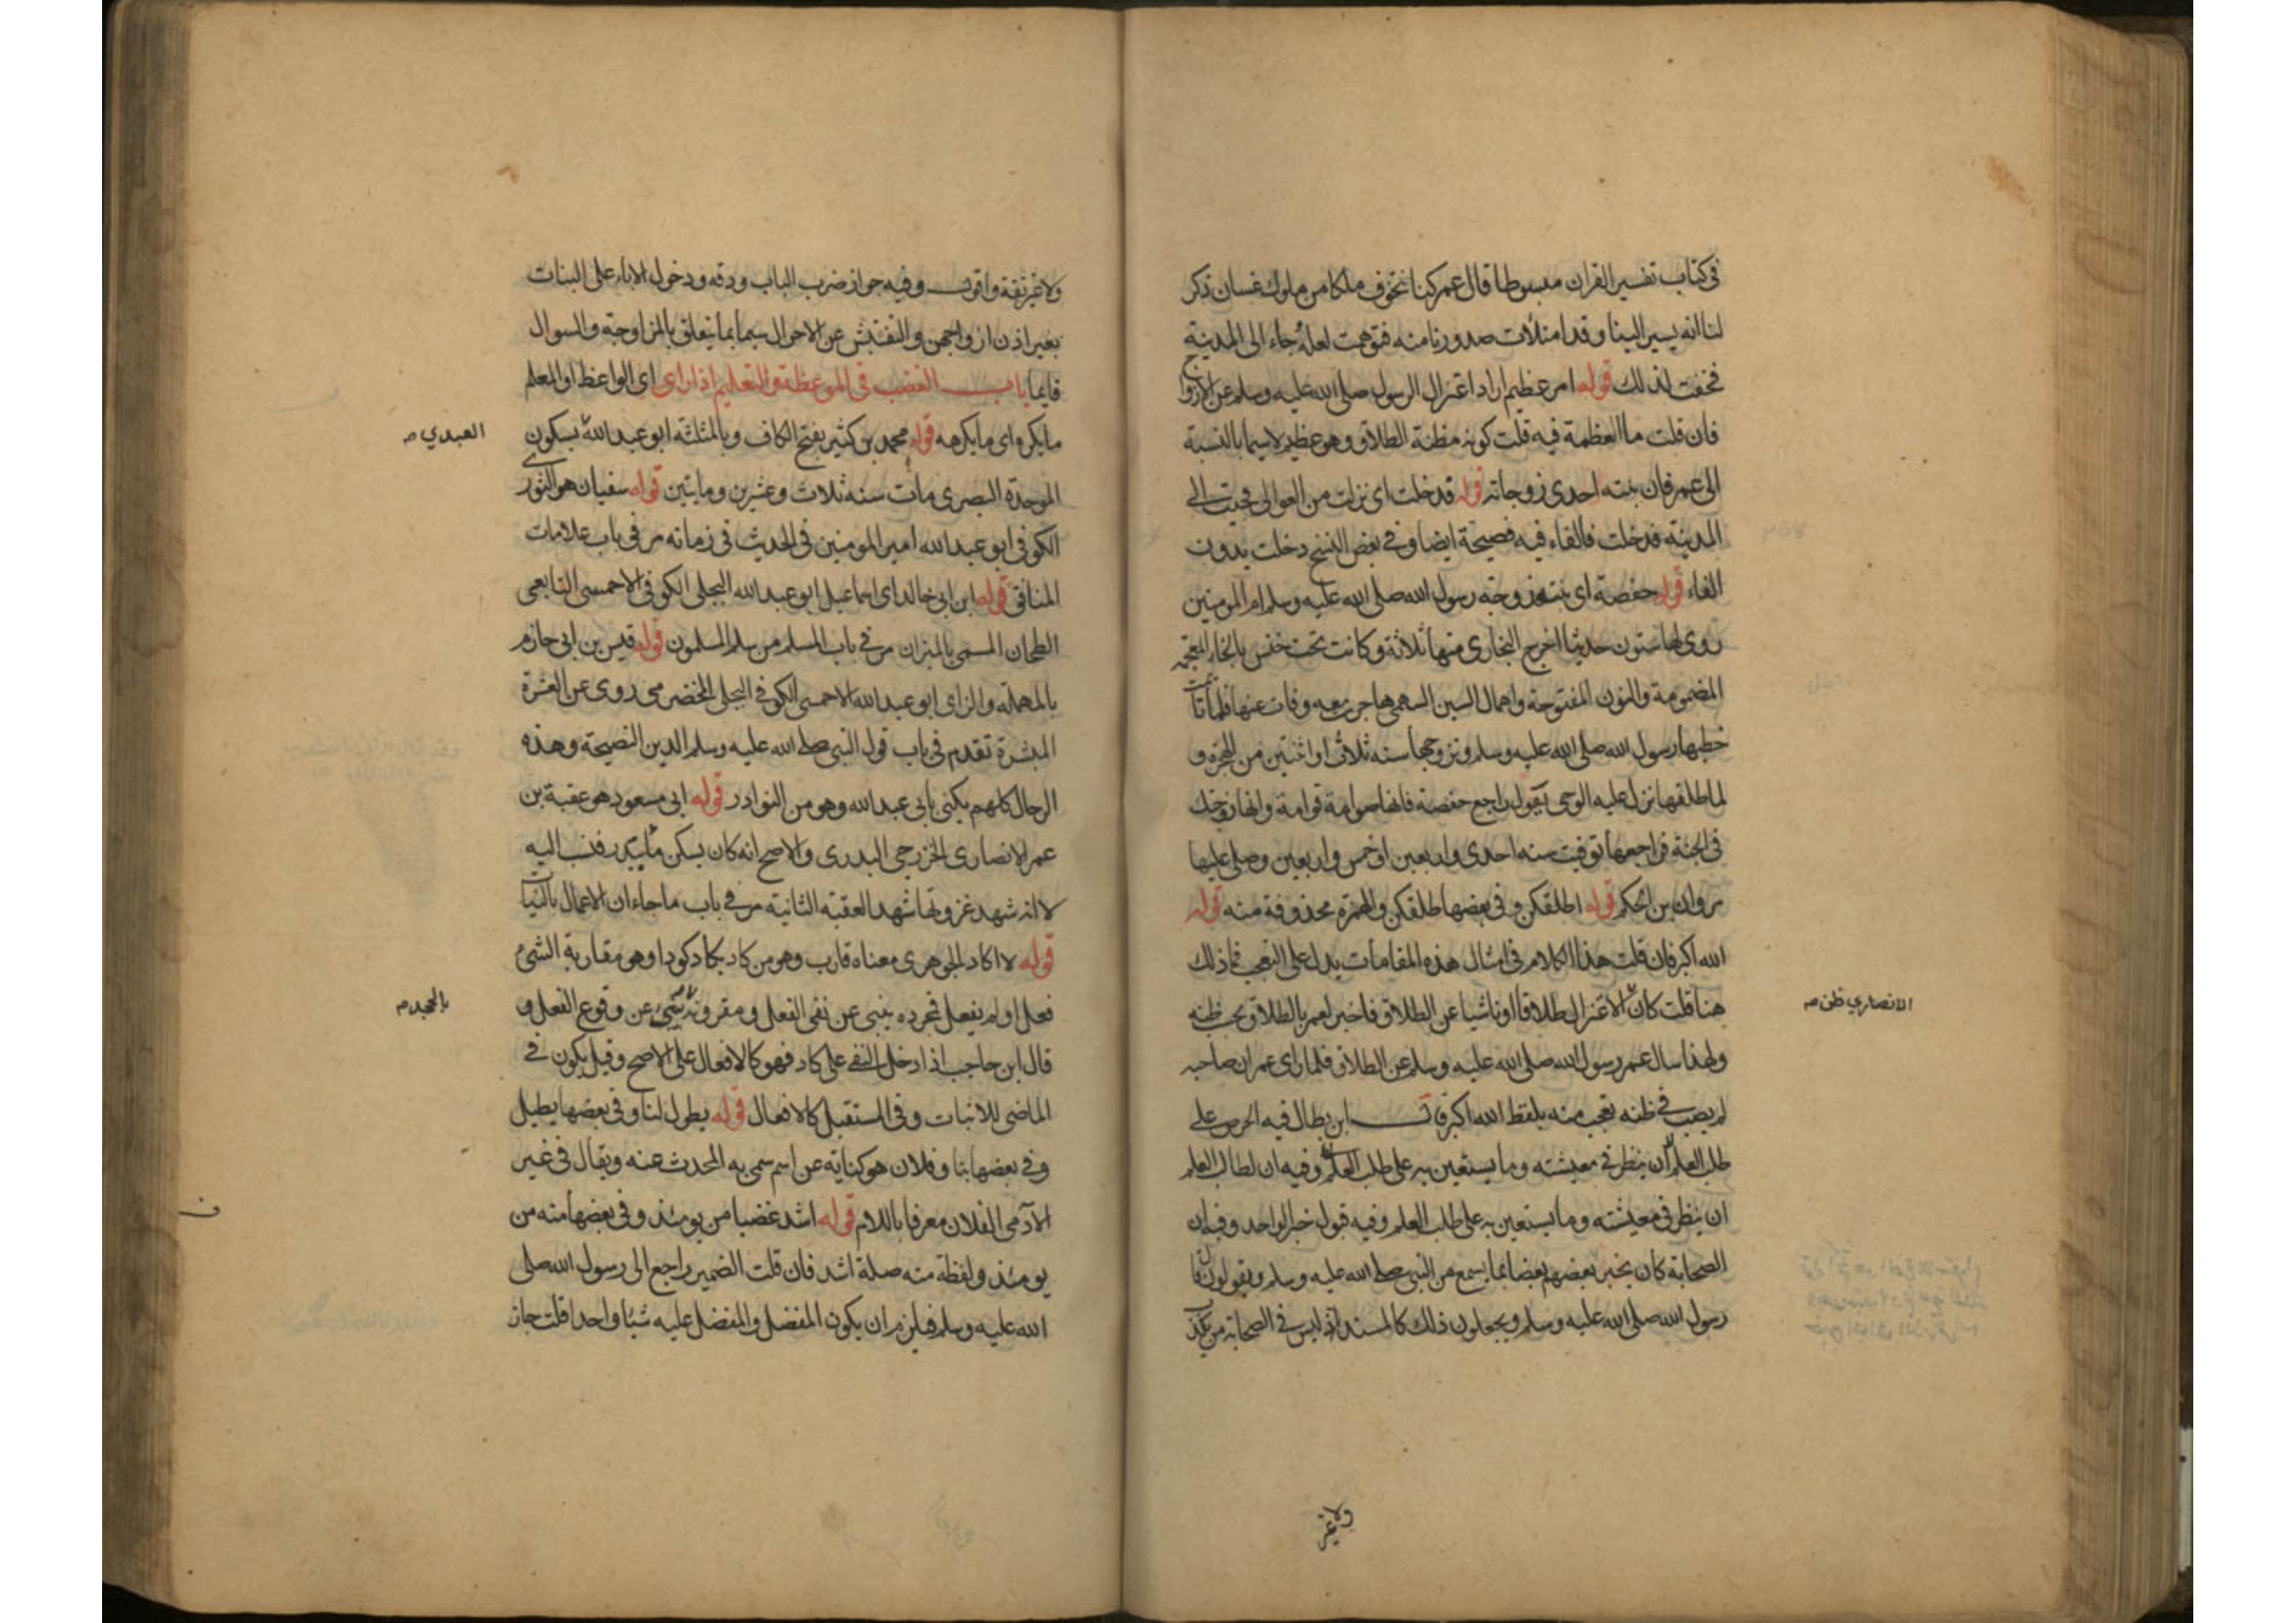 فى كتاب تفسير القران مبسوطا قال عمر كنا نتخوف ملكا من ملوك غسان ذكر
لنا انه يسير الينا وقد امتلات صدورنا منه فتوهمت لعله جاء الى المدينة
فخفت لذلك قوله امر عظيم اراد اعتزال الرسول صلى الله عليه وسلم عن الازواج
فان قلت ما العظمة فيه قلت كونه مظنة الطلاق وهو عظيم لاسيما بالنسبة
الى عمر فان بنته احدى زوجاته قوله فدخلت اى نزلت من العوالى فجيت الى
المدينة فدخلت فالفاء فيه فصيحة ايضا وفى بعض النسخ دخلت بدون
الفاء قوله حفصة اى بنته زوجة رسول الله صلى الله عليه وسلم ام المومنين
روى لها ستون حديثا اخرج البخارى منها ثلاثة وكانت تحت خنيس بالخاء المعجمة
المضمومة والنون المفتوحة واهمال السين السهمى هاجرت معه وفات عنها فلما تايمت
خطبها رسول الله صلى الله عليه وسلم وتزوجها سنه ثلاث او اثنتين من الهجرة و
لما طلقها نزل عليه الوحى يقول راجع حفصة فانها صوامة قوامة وانها زوجتك
فى الجنة فراجعها توفيت سنه احدى واربعين او خمس واربعين وصلى عليها
مروان بن الحكم قوله اطلقكن وفى بعضها طلقكن والهمزة محذوفة منه قوله
الله اكبر فان قلت هذا الكلام فى امثال هذه المقامات يدل على التعجب فما ذلك
هنا قلت كان الاعتزال طلاقا او ناشيا عن الطلاق فاخبر لعمر بالطلاق بحسب ظنه
الانصاري ظن صـ
ولهذا سال عمر رسول الله صلى الله عليه وسلم عن الطلاق فلما راى عمر ان صاحبه
لم يصب فى ظنه تعجب منه بلفظ الله اكبر قال ابن بطال فيه الحرص على
طلب العلم ان ينظر فى معيشته وما يستعين به على طلب العلم وفيه ان لطالب العلم
ان ينظر فى معيشته وما يستعين به على طلب العلم وفيه قبول خبر الواحد وفيه ان
الصحابة كان يخبر بعضهم بعضا بما يسمع من النبى صلى الله عليه وسلم ويقولون قال
رسول الله صلى الله عليه وسلم ويجعلون ذلك كالمسند اذ ليس فى الصحابة من يكذب
ولا غير
ولا غير ثقة واقول وفيه جواز ضرب الباب ودقه ودخول الاباء على البنات
بغير اذن ازواجهن والتفتيش عن الاحوال سيما بما يتعلق بالمزاوجة والسوال
قايما باب الغضب فى الموعظة والتعليم اذا راى اى الواعظ او المعلم
ما يكره اى ما يكرهه قوله محمد بن كثير بفتح الكاف وبالمثلثة ابو عبد الله بسكون
العبدي صـ
الموحدة البصرى مات سنه ثلاث وعشرين ومايتين قوله سفيان هو الثورى
الكوفى ابو عبد الله امير المومنين فى الحديث فى زمانه مر فى باب علامات
المنافق قوله ابن ابى خالد اى اسماعيل ابو عبد الله البجلى الكوفى الاحمسى التابعى
الطحان المسمى بالميزان مر فى باب المسلم من سلم المسلمون قوله قيس بن ابى حازم
بالمهملة والزاى ابو عبد الله الاحمسى الكوفى البجلى المخضرمى روى عن العشرة
المبشرة تقدم فى باب قول النبى صلى الله عليه وسلم الدين النصيحة وهذه
الرجال كلهم يكنى بابى عبد الله وهو من النوادر قوله ابى مسعود هو عقبة بن
عمر الانصارى الخزرجى البدرى والاصح انه كان يسكن ما ببدر فنسب اليه
لا انه شهد غزوتها شهد العقبة الثانية مر فى باب ما جاء ان الاعمال بالنيات
قوله لا اكاد الجوهرى معناه قارب وهو من كاد يكاد كودا وهو مقاربة الشئ
فعل او لم يفعل فمجرده ينبى عن نفى الفعل ومقرونه ينبئ عن وقوع الفعل و
بالجحد صـ
قال ابن حاجب اذا دخل النفى على كاد فهو كالافعال على الاصح وقيل يكون فى
الماضى للاثبات وفى المستقبل كالافعال قوله يطول لنا وفى بعضها يطيل
وفى بعضها بنا وفلان هو كناية عن اسم سمى به المحدث عنه ويقال فى غير
الآدمى الفلان معرفا باللام قوله اشد غضبا من يومئذ وفى بعضها منه من
يومئذ ولفظة منه صلة اشد فان قلت الضمير راجع الى رسول الله صلى
الله عليه وسلم فيلزم ان يكون المفضل والمفضل عليه شيئا واحدا قلت جاز